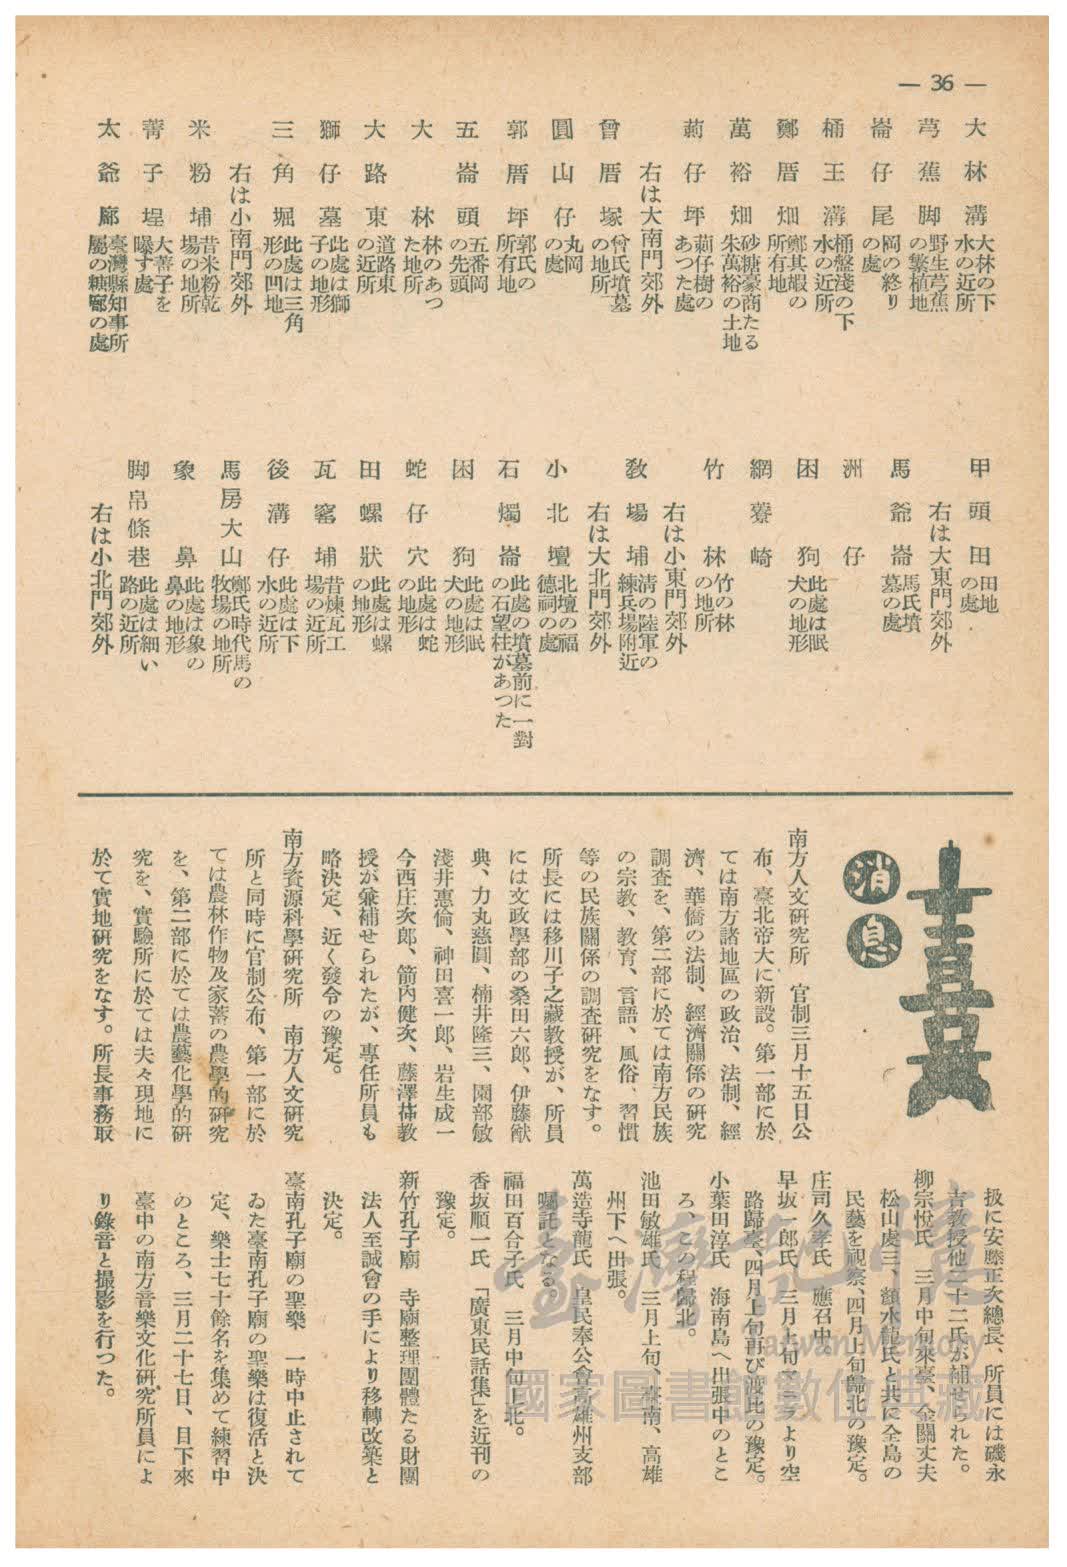 — 36 —
大林溝 大林の下水の近所
芎蕉脚 野生芎蕉の繁植地
崙仔尾 岡の終りの處
桶王溝 桶盤淺の下水の近所
鄭厝畑 鄭其嘏の所有地
萬裕畑 砂糖豪商たる朱萬裕の土地
莿仔坪 莿仔樹のあつた處
右は大南門郊外
曾厝塚 曾氏墳墓の地所
圓山仔 丸岡の處
郭厝坪 郭氏の所有地
五崙頭 五番岡の先頭
大林 林のあつた地所
大路東 道路東の近所
獅仔墓 此處は獅子の地形
三角堀 此處は三角形の凹地
右は小南門郊外
米粉埔 昔米粉乾場の地所
菁子埕 大菁子を曝す處
太爺廍 臺灣縣知事所屬の糖廍の處
甲頭田 田地の處
右は大東門郊外
馬爺崙 馬氏墳墓の處
洲仔
困狗 此處は眠犬の地形
網藔崎
竹林 竹の林の地所
右は小東門郊外
敎場埔 淸の陸軍の練兵場附近
右は大北門郊外
小北壇 北壇の福德祠の處
石燭崙 此處の墳墓前に一對の石望柱があつた
困狗 此處は眠犬の地形
蛇仔穴 此處は蛇の地形
田螺狀 此處は螺の地形
瓦窰埔 昔煉瓦工場の近所
後溝仔 此處は下水の近所
馬房大山 鄭氏時代馬の牧場の地所
象鼻 此處は象の鼻の地形
脚帛條巷 此處は細い路の近所
右は小北門郊外
消息
南方人文硏究所 官制三月十五日公
布、臺北帝大に新設。第一部に於
ては南方諸地區の政治、法制、經
濟、華僑の法制、經濟關係の硏究
調査を、第二部に於ては南方民族
の宗教、敎育、言語、風俗、習慣
等の民族關係の調査硏究をなす。
所長には移川子之藏敎授が、所員
には文政學部の桑田六郎、伊藤猷
典、力丸慈圓、楠井隆三、園部敏
淺井惠倫、神田喜一郎、岩生成一
今西庄次郎、箭內健次、藤澤茽敎
授が兼補せられたが、專任所員も
略決定、近く發令の豫定。
南方資源科學硏究所 南方人文硏究
所と同時に官制公布、第一部に於
ては農林作物及家蓄の農學的硏究
を、第二部に於ては農藝化學的硏
究を、實驗所に於ては夫々現地に
於て實地硏究をなす。所長事務取
扱に安藤正次總長、所員には磯永
吉敎授他二十二氏が補せられた。
柳宗悅氏 三月中旬來臺、金關丈夫
松山虔三、顏水龍氏と共に全島の
民藝を視察、四月上旬歸北の豫定。
庄司久孝氏 應召中。
早坂一郎氏 三月上旬マニラより空
路歸臺、四月上旬再び渡比の豫定。
小葉田淳氏 海南島へ出張中のとこ
ろ、この程歸北。
池田敏雄氏 三月上旬、臺南、高雄
州下へ出張。
萬造寺龍氏 皇民奉公會高雄州支部
囑託となる。
福田百合子氏 三月中旬上北。
香坂順一氏 「廣東民話集」を近刊の
豫定。
新竹孔子廟 寺廟整理團體たる財團
法人至誠會の手により移轉改築と
決定。
臺南孔子廟の聖樂 一時中止されて
ゐた臺南孔子廟の聖樂は復活と決
定、樂士七十餘名を集めて練習中
のところ、三月二十七日、目下來
臺中の南方音樂文化硏究所員によ
り錄音と撮影を行つた。
臺灣記憶
Taiwan Memory
國家圖書館數位典藏